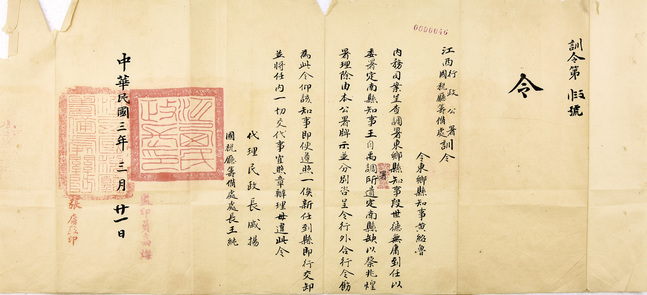 訓令第 號
令
0000046
江西行政公署
國稅廳籌備處訓令
令東鄉縣知事黃紹魯
內務司案呈查調署東鄉縣知事段世德無庸到任以
委署定南縣知事王 調所遺定南縣缺以蔡兆煌
署理除由本公署牌示並分別咨呈令行外合行令飭
為此令仰該知事即便遵照一俟新任到縣即行交卸
並將任內一切交代事宜照章辦理毋違此令
代理民政長戚揚
國稅廳籌備處處長王純
中華民國三年三月廿一日
江西民政長印